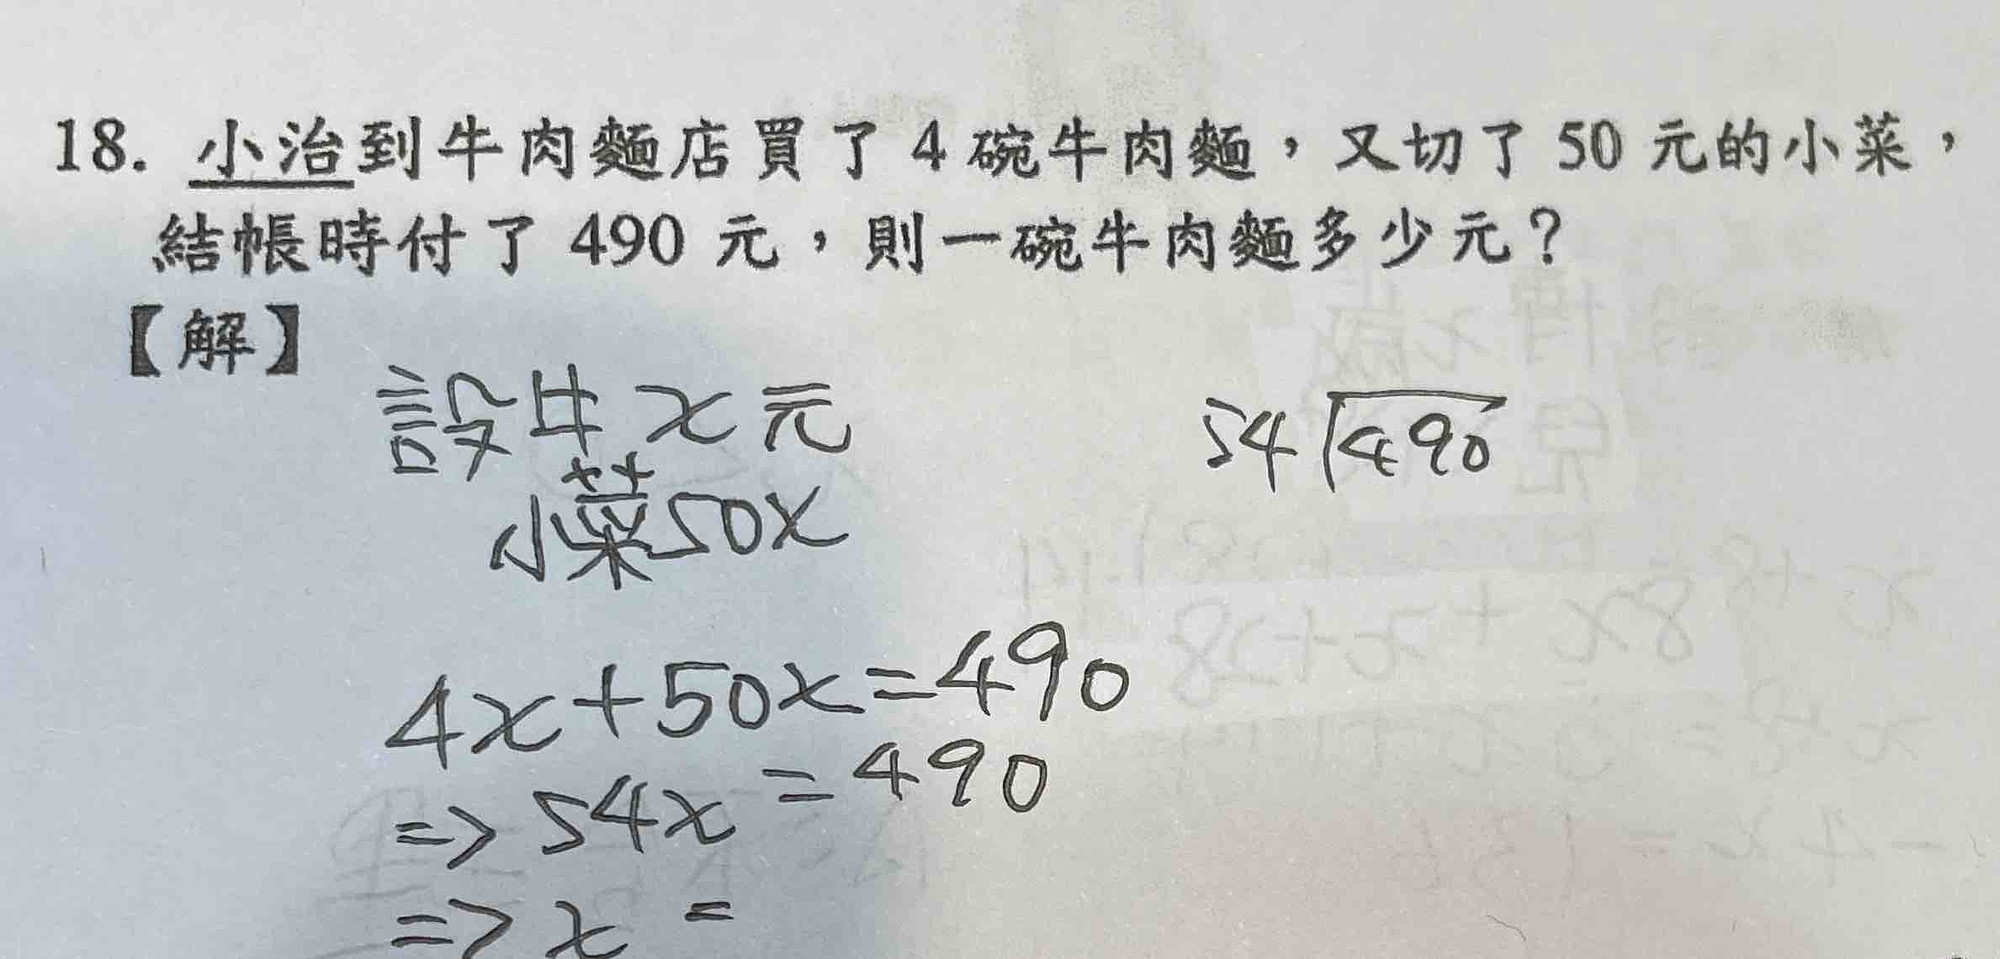 18. 小治到牛肉麵店買了 4 碗牛肉麵，又切了 50 元的小菜，
結帳時付了 490 元，則一碗牛肉麵多少元？
【解】
設牛 x 元
小菜50x
54 490
4x+50x=490
=> 54x=490
=> x =